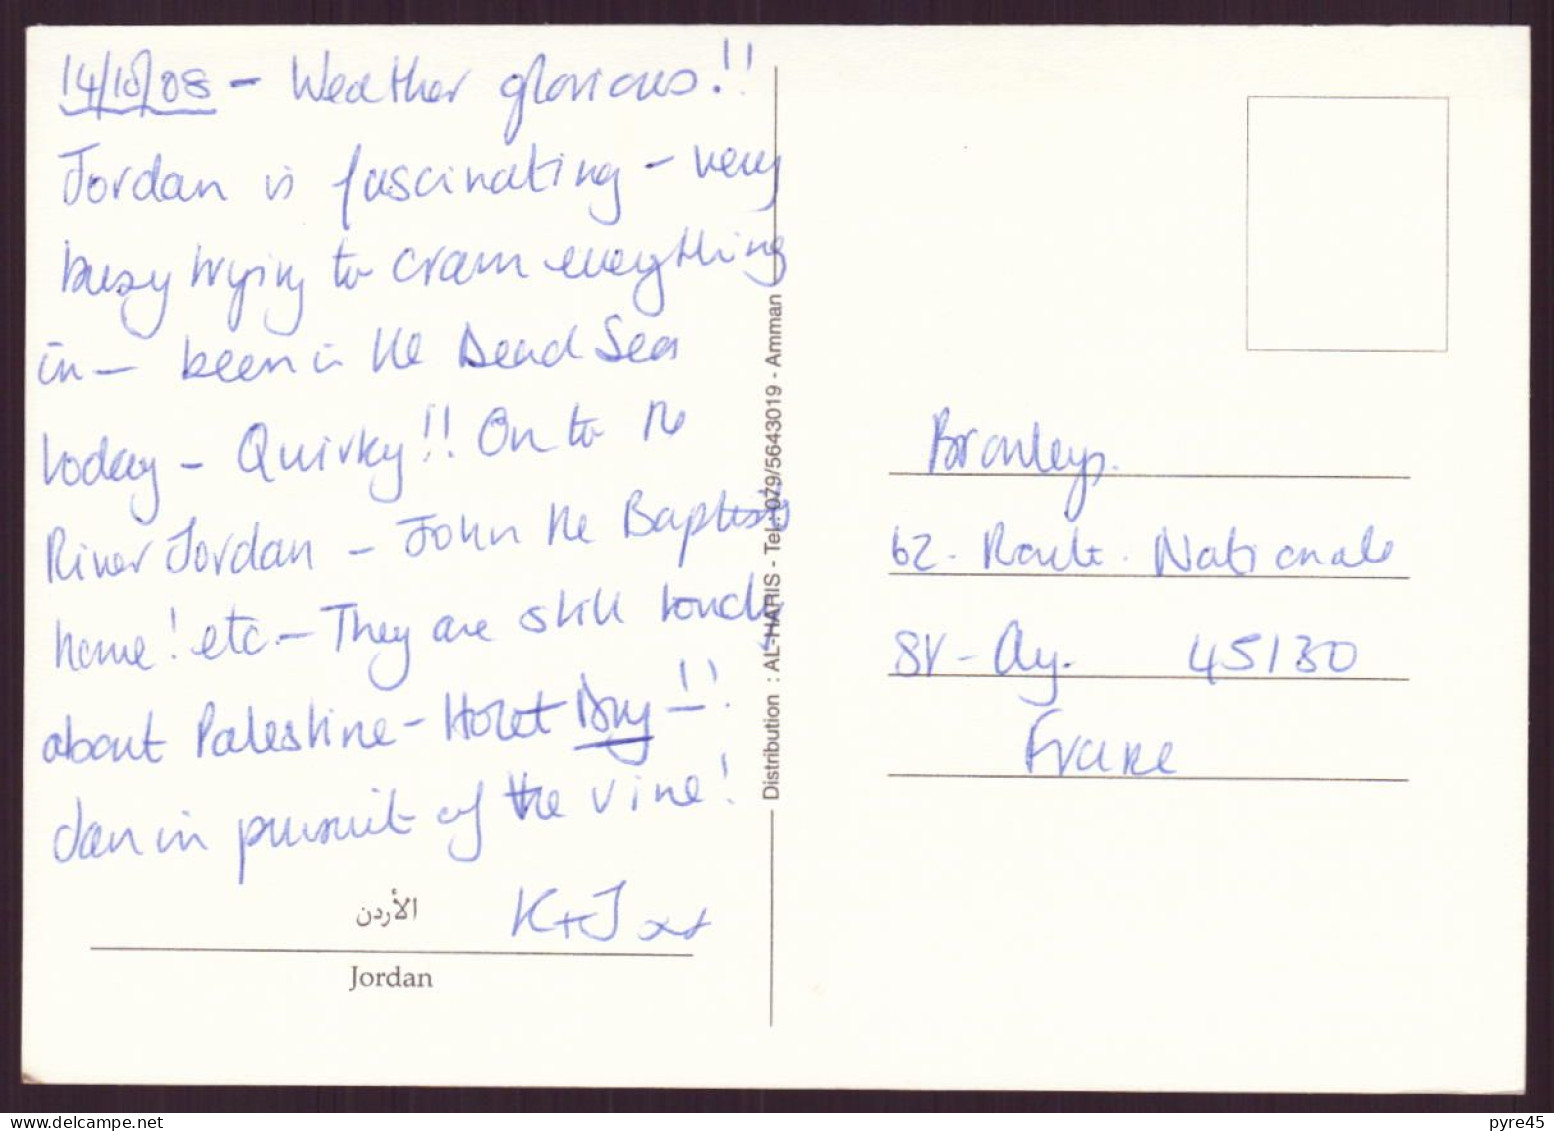 14/10/08 - Weather glorious!!
Jordan is fascinating - very
busy trying to cram everything
in - been in the Dead Sea
today - Quirky!! On to the
River Jordan - John the Baptists
home! etc. - They are still touchy
about Palestine - Hotel Dry!!!
dan in pursuit of the vine!
K+J xx
الأردن
Jordan
Distribution : AL-HARIS - Tel.: 079/5643019 - Amman
Bromleys.
62 - Route. Nationale
St - Ay. 45130
France
pyre45